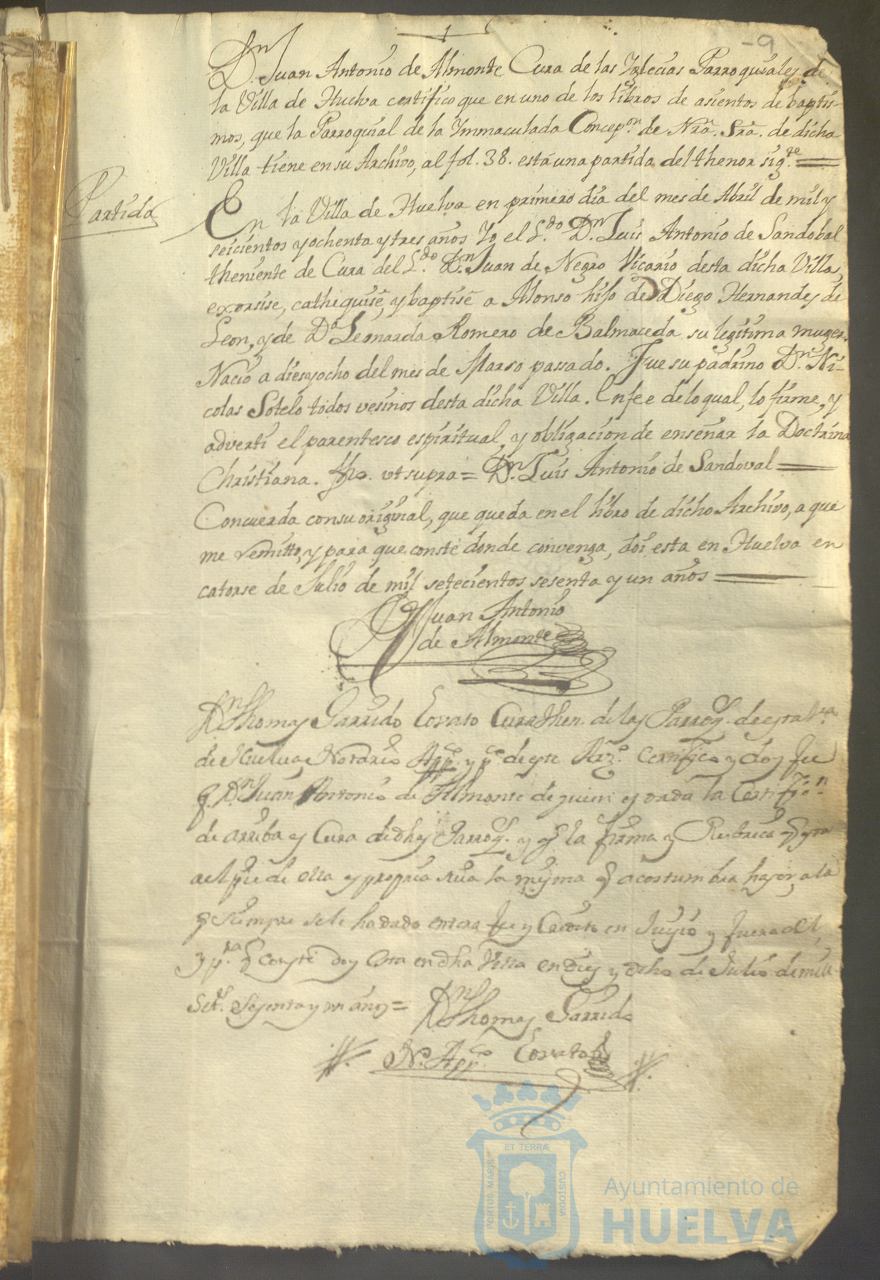 -9
Dn. Juan Antonio de Almonte Cura de las Yglecias Parroquiales de
la Villa de Huelva certifico que en uno de los libros de asientos de baptis-
mos, que la Parroquial de la Immaculada Concepn. de Nra. Sra. de dicha
Villa tiene en su Archivo, al fol. 38. está una partida del thenor sigte.
Partida
En la Villa de Huelva en primero dia del mes de Abril de mil y
seicientos y ochenta y tres años Yo el Ldo. Dn. Luis Antonio de Sandobal
theniente de Cura del Ldo. Dn. Juan de Negro Vicario desta dicha Villa,
exorsise, cathequisé, y baptisé a Alonso hijo de Diego Hernandes de
Leon, y de Da. Leonarda Romero de Balmaceda su legitima muger.
Nacio a dies y ocho del mes de Marso passado. Fue su padrino Dn. Ni-
colas Sotelo todos vesinos desta dicha Villa. En fee de lo qual, lo firme, y
adverti el parentesco espiritual, y obligacion de enseñar la Doctrina
Christiana. fho. ut supra = Dn. Luis Antonio de Sandoval
Concuerda con su original, que queda en el libro de dicho Archivo, a que
me remitto, y para que conste donde convenga, doi esta en Huelva en
catorse de Julio de mil setecientos sesenta y un años
Dn. Juan Antonio
de Almonte
Dn. Thomas Garrido Cura then. de las Parroqs. de esta Va.
de Huelva Notario App. y de este Certifico y doy fee
q Dn. Juan Antonio de Almonte de quien es dada la Certifn.
de arriba es Cura de dhas Parroqs. y q la firma y Rubrica q esta
al pie de ella es propia suya la misma q acostumbra haser, a la
q siempre se le ha dado entera fee y Credito en Juysio y fuera del,
y pa. q conste doy esta en dha Villa en dies y ocho de Julio de mill
Set. Sesenta y un años =
Dn. Thomas Garrido
No. App.
ET TERRÆ
PORTUS MARIS
CUSTODIA
Ayuntamiento de
HUELVA